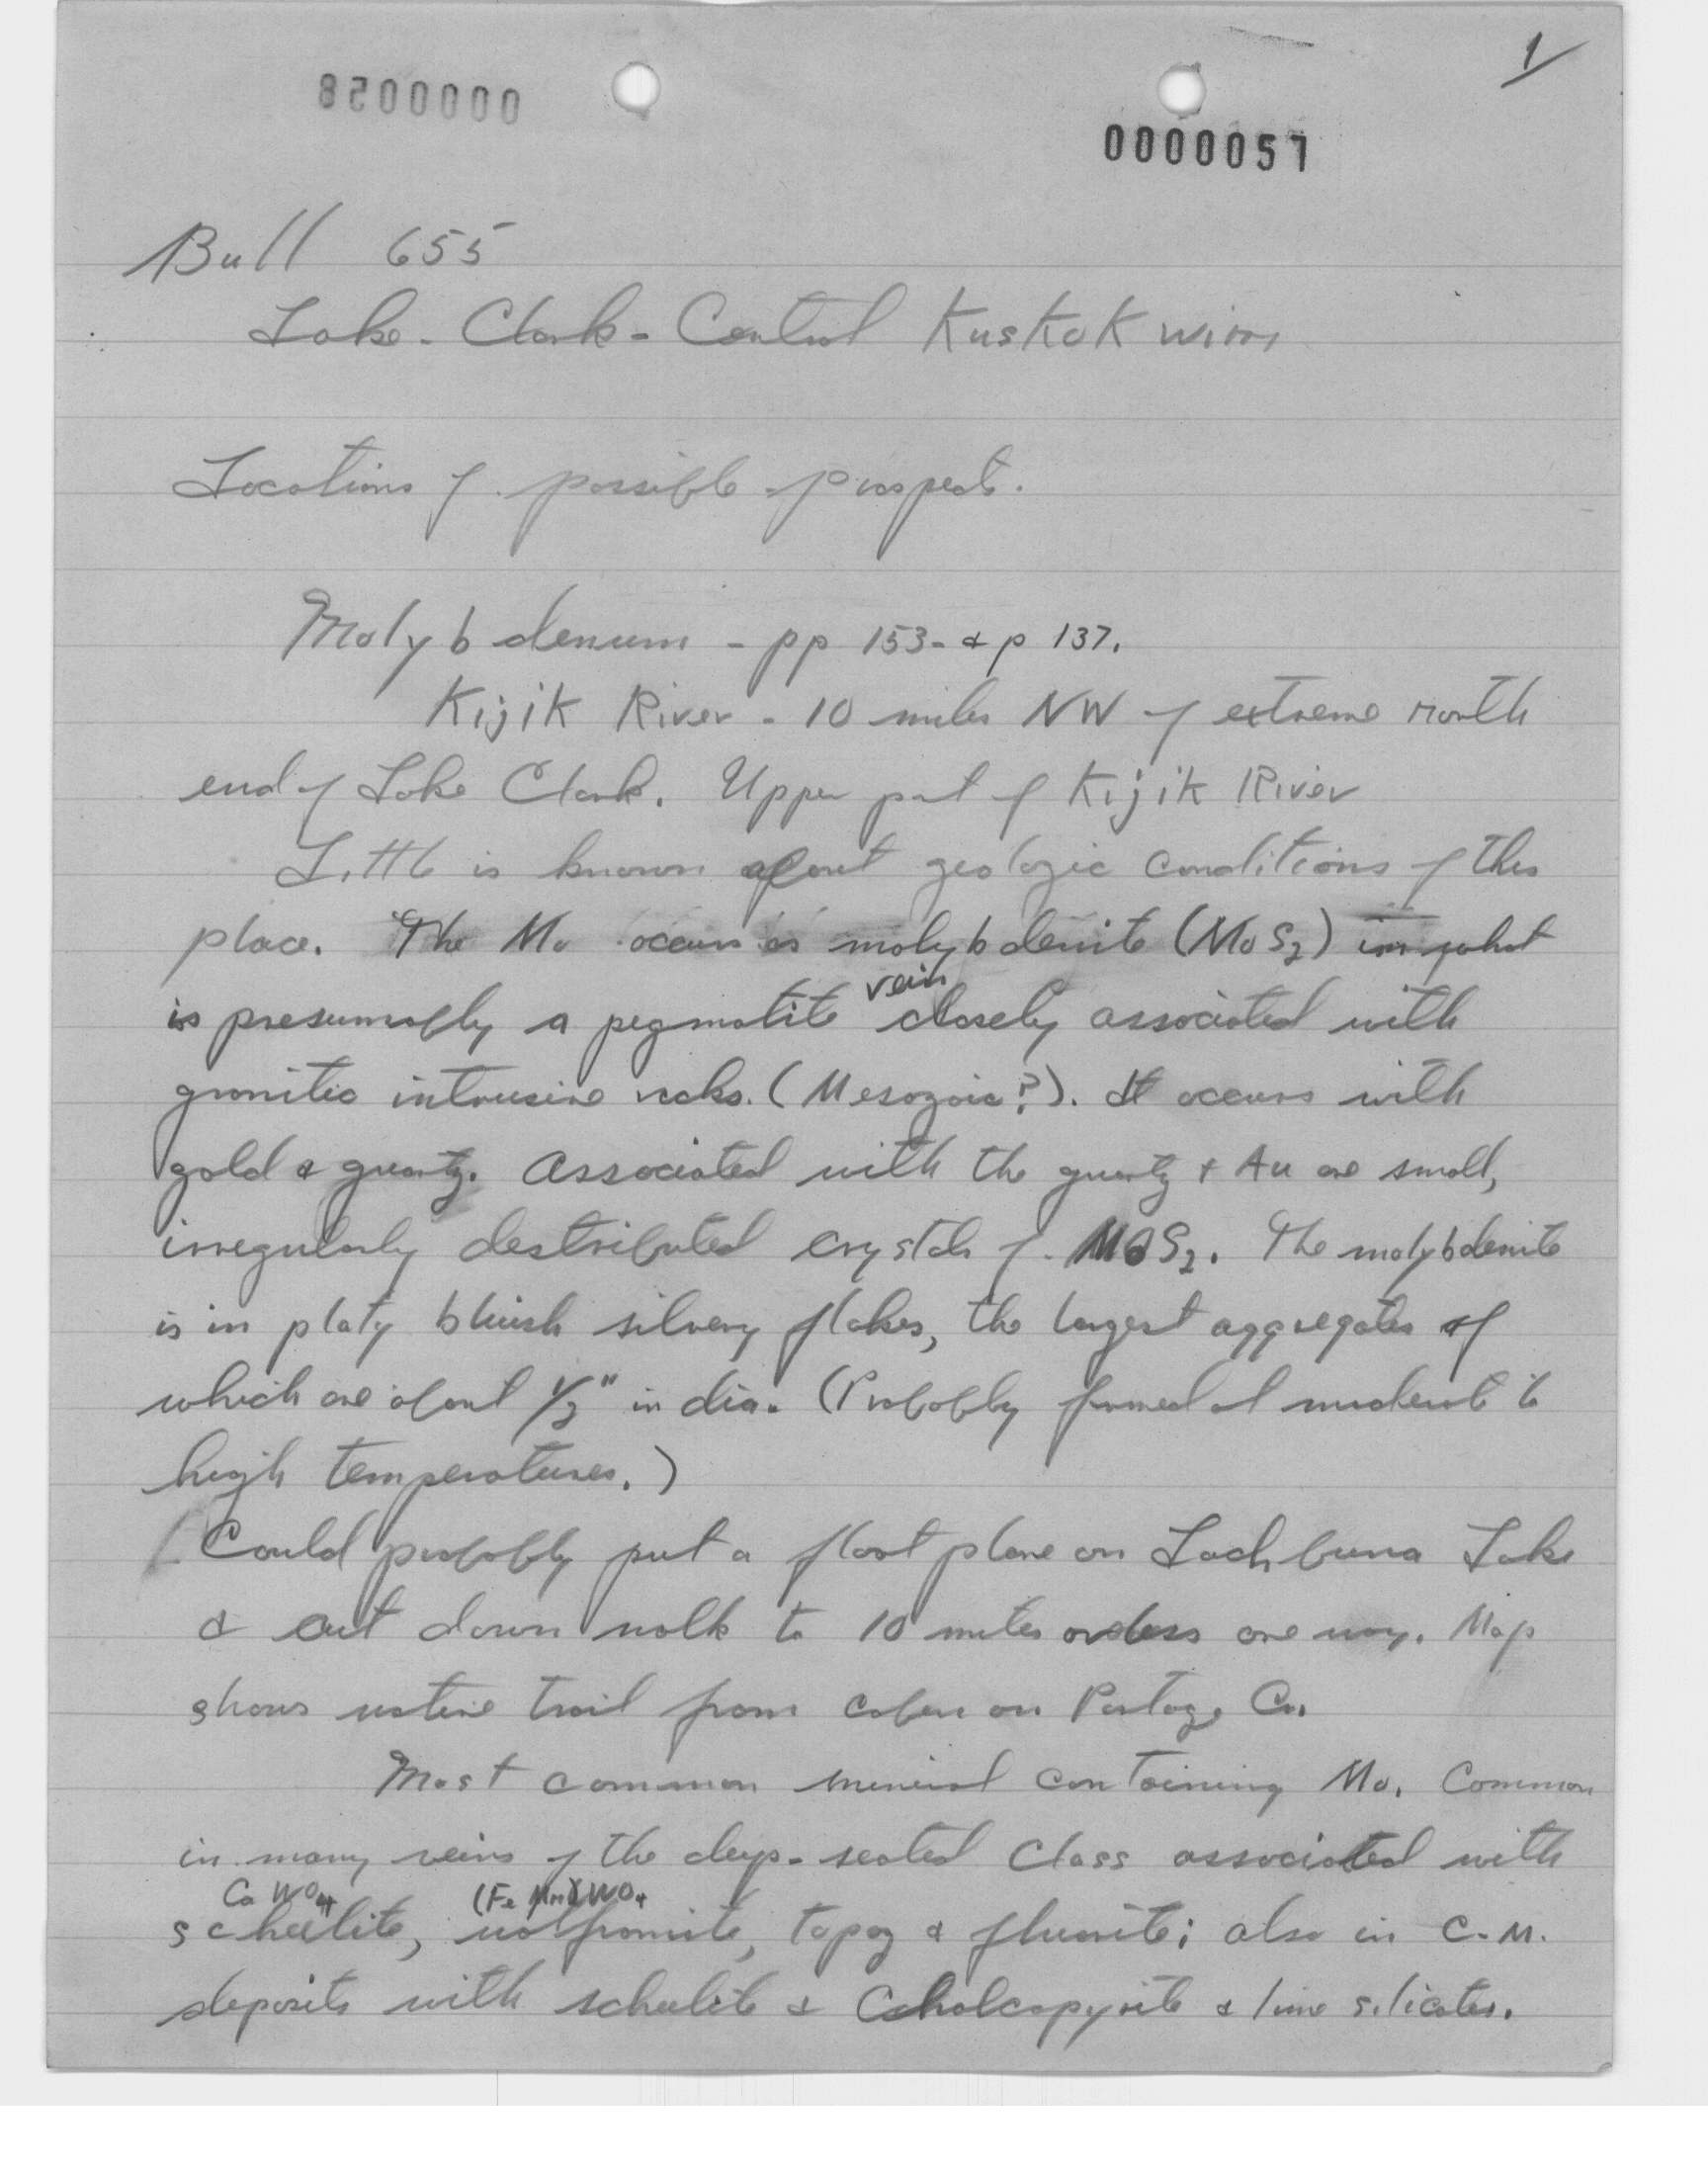 1
8200000
0000057
Bull 655
Lake - Clark - Central Kuskokwim
Locations of possible prospects.
Molybdenum - pp 153- & p 137.
Kijik River - 10 miles NW of extreme north
end of Lake Clark. Upper part of Kijik River
Little is known about geologic conditions of this
place. The Mo occurs as molybdenite (MoS2) in what
vein
is presumably a pegmatite closely associated with
granitic intrusive rocks. (Mesozoic?). It occurs with
gold & quartz. Associated with the quartz & Au are small,
irregularly destributed crystals of MoS2. The molybdenite
is in platy bluish silvery flakes, the largest aggregates of
which are about 1/2" in dia. (Probably formed at moderate to
high temperatures.)
Could probably put a float plane on Lachbuna Lake
& cut down walk to 10 miles or less one way. Map
shows native trail from cabin on Portage Cr.
Most common mineral containing Mo. Common
in many veins of the deep-seated class associated with
CaWO4 (Fe Mn)WO4
scheelite, wolframite, topaz & fluorite; also in C.M.
deposits with scheelite & Chalcopyrite & lime silicates.